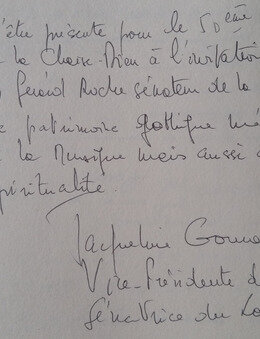 être présente pour le 50ème
la Chaise-Dieu à l'invitation
Gérard Roche sénateur de la
patrimoine gothique
la Musique mais aussi
spiritualité.
Jacqueline
Vice-Présidente d
Sénatrice du Lo